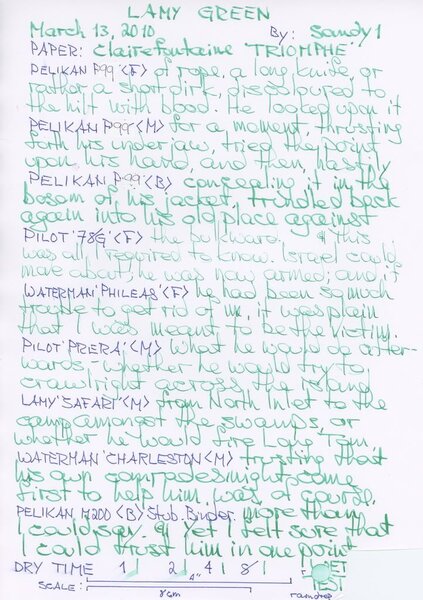 LAMY GREEN
March 13, 2010 By: Sandy1
PAPER: Clairefontaine 'TRIOMPHE'
PELIKAN P99 <F> of rope, a long knife, or
rather a short dirk, discoloured to
the hilt with blood. He looked upon it
PELIKAN P99 <M> for a moment, thrusting
forth his underjaw, tried the point
upon his hand, and then, hastily
PELIKAN P99 <B> concealing it in the
bosom of his jacket, trundled back
again into his old place against
PILOT '78G' <F> the bulkward. ¶ This
was all I required to know. Israel could
move about; he was now armed; and if
WATERMAN 'PHILEAS' <F> he had been so much
trouble to get rid of me, it was plain
that I was meant to be the victim.
PILOT 'PRERA' <M> What he would do after-
wards - whether he would try to
crawl right across the island
LAMY 'SAFARI' <M> from North Inlet to the
camp amongst the swamps, or
whether he would fire Long Tom,
WATERMAN 'CHARLESTON' <M> trusting that
his own comrades might come
first to help him, was, of course,
PELIKAN M200 <B> Stub. Binder. more than
I could say. ¶ Yet I felt sure that
I could trust him in one point
DRY TIME 1 2 4 8 WET
TEST
SCALE: 4"
8cm raindrop